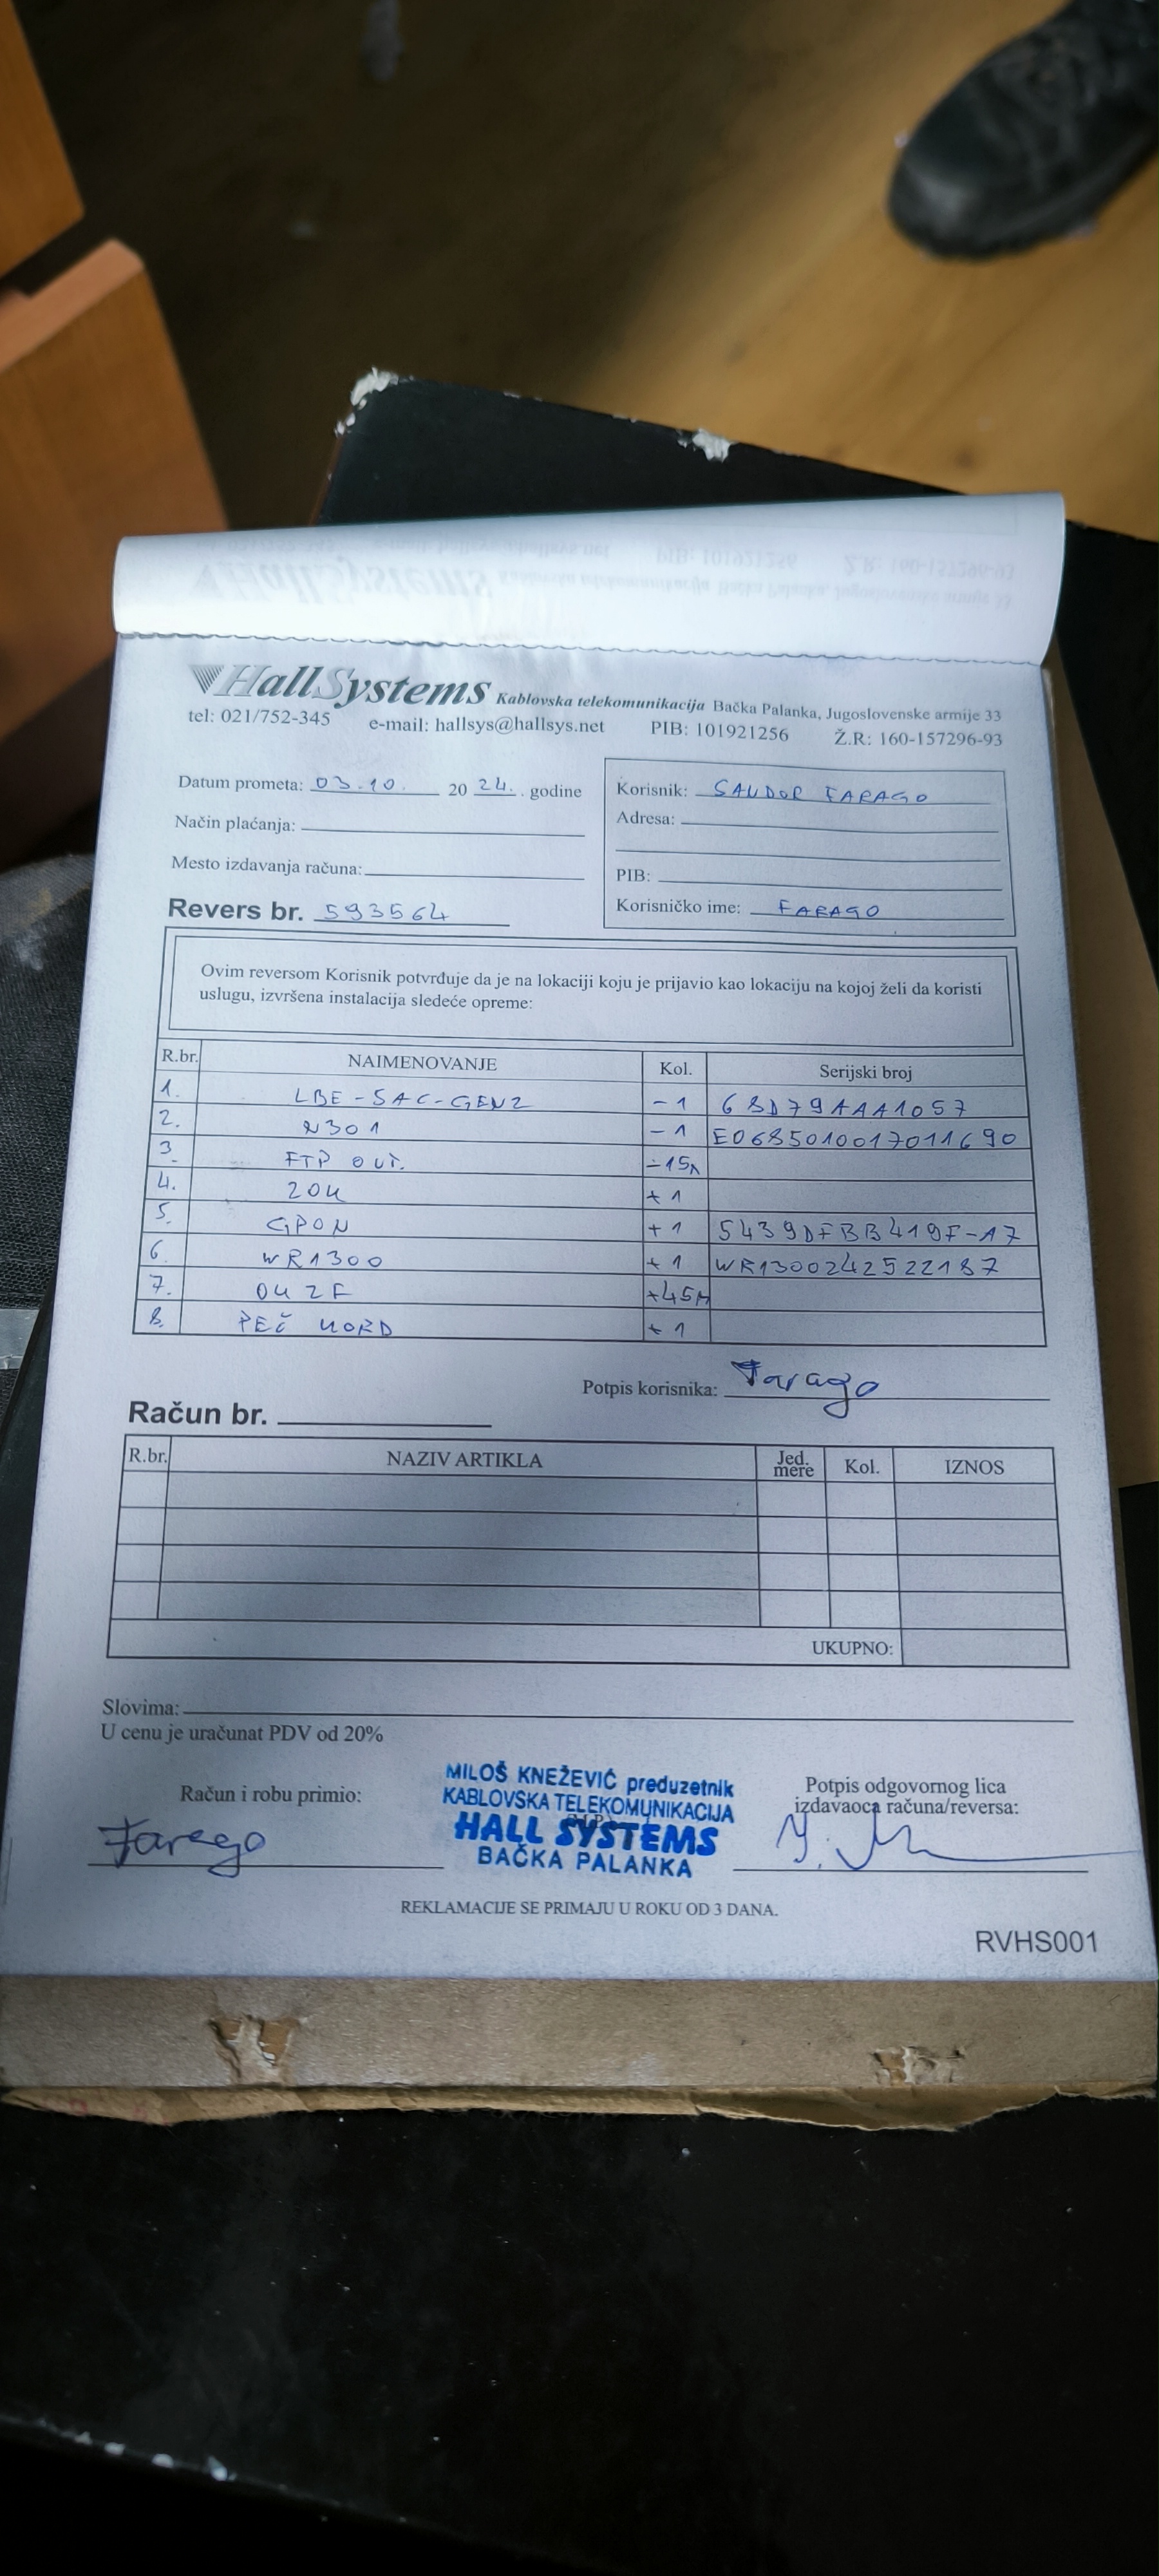 HallSystems Kablovska telekomunikacija Bačka Palanka, Jugoslovenske armije 33
tel: 021/752-345 e-mail: hallsys@hallsys.net PIB: 101921256 Ž.R: 160-157296-93
Datum prometa: 03.10. 20 24. . godine
Način plaćanja:
Mesto izdavanja računa:
Revers br. 593564
Korisnik: SANDOR FARAGO
Adresa:
PIB:
Korisničko ime: FARAGO
Ovim reversom Korisnik potvrđuje da je na lokaciji koju je prijavio kao lokaciju na kojoj želi da koristi
uslugu, izvršena instalacija sledeće opreme:
R.br. NAIMENOVANJE Kol. Serijski broj
1. LBE-5AC-GEN2 -1 68D79AAA1057
2. N301 -1 E0685010017011690
3. FTP OUT. -15M
4. ZOK +1
5. GPON +1 5439DFBB419F-17
6. WR1300 +1 WR1300242522187
7. OK 2F +45M
8. PEČ KORD +1
Potpis korisnika: Farago
Račun br.
R.br. NAZIV ARTIKLA Jed. mere Kol. IZNOS
UKUPNO:
Slovima:
U cenu je uračunat PDV od 20%
Račun i robu primio:
Farago
MILOŠ KNEŽEVIĆ preduzetnik
KABLOVSKA TELEKOMUNIKACIJA
HALL SYSTEMS
BAČKA PALANKA
Potpis odgovornog lica
izdavaoca računa/reversa:
REKLAMACIJE SE PRIMAJU U ROKU OD 3 DANA.
RVHS001